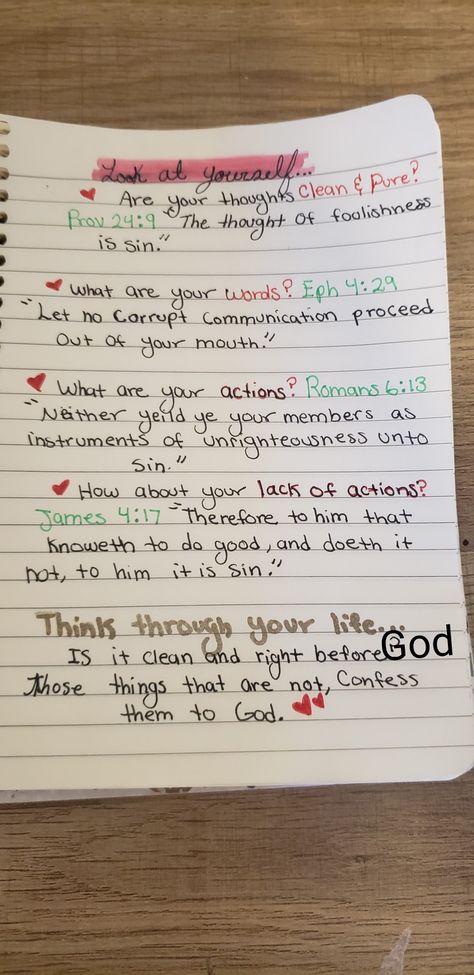 Look at yourself...
Are your thoughts Clean & Pure?
Prov 24:9 "The thought of foolishness
is sin."
What are your words? Eph 4:29
"Let no Corrupt Communication proceed
Out of your mouth."
What are your actions? Romans 6:13
"Neither yeild ye your members as
instruments of unrighteousness unto
Sin."
How about your lack of actions?
James 4:17 "Therefore to him that
Knoweth to do good, and doeth it
not, to him it is Sin."
Think through your life...
IS it clean and right before God
those things that are not, Confess
them to God.